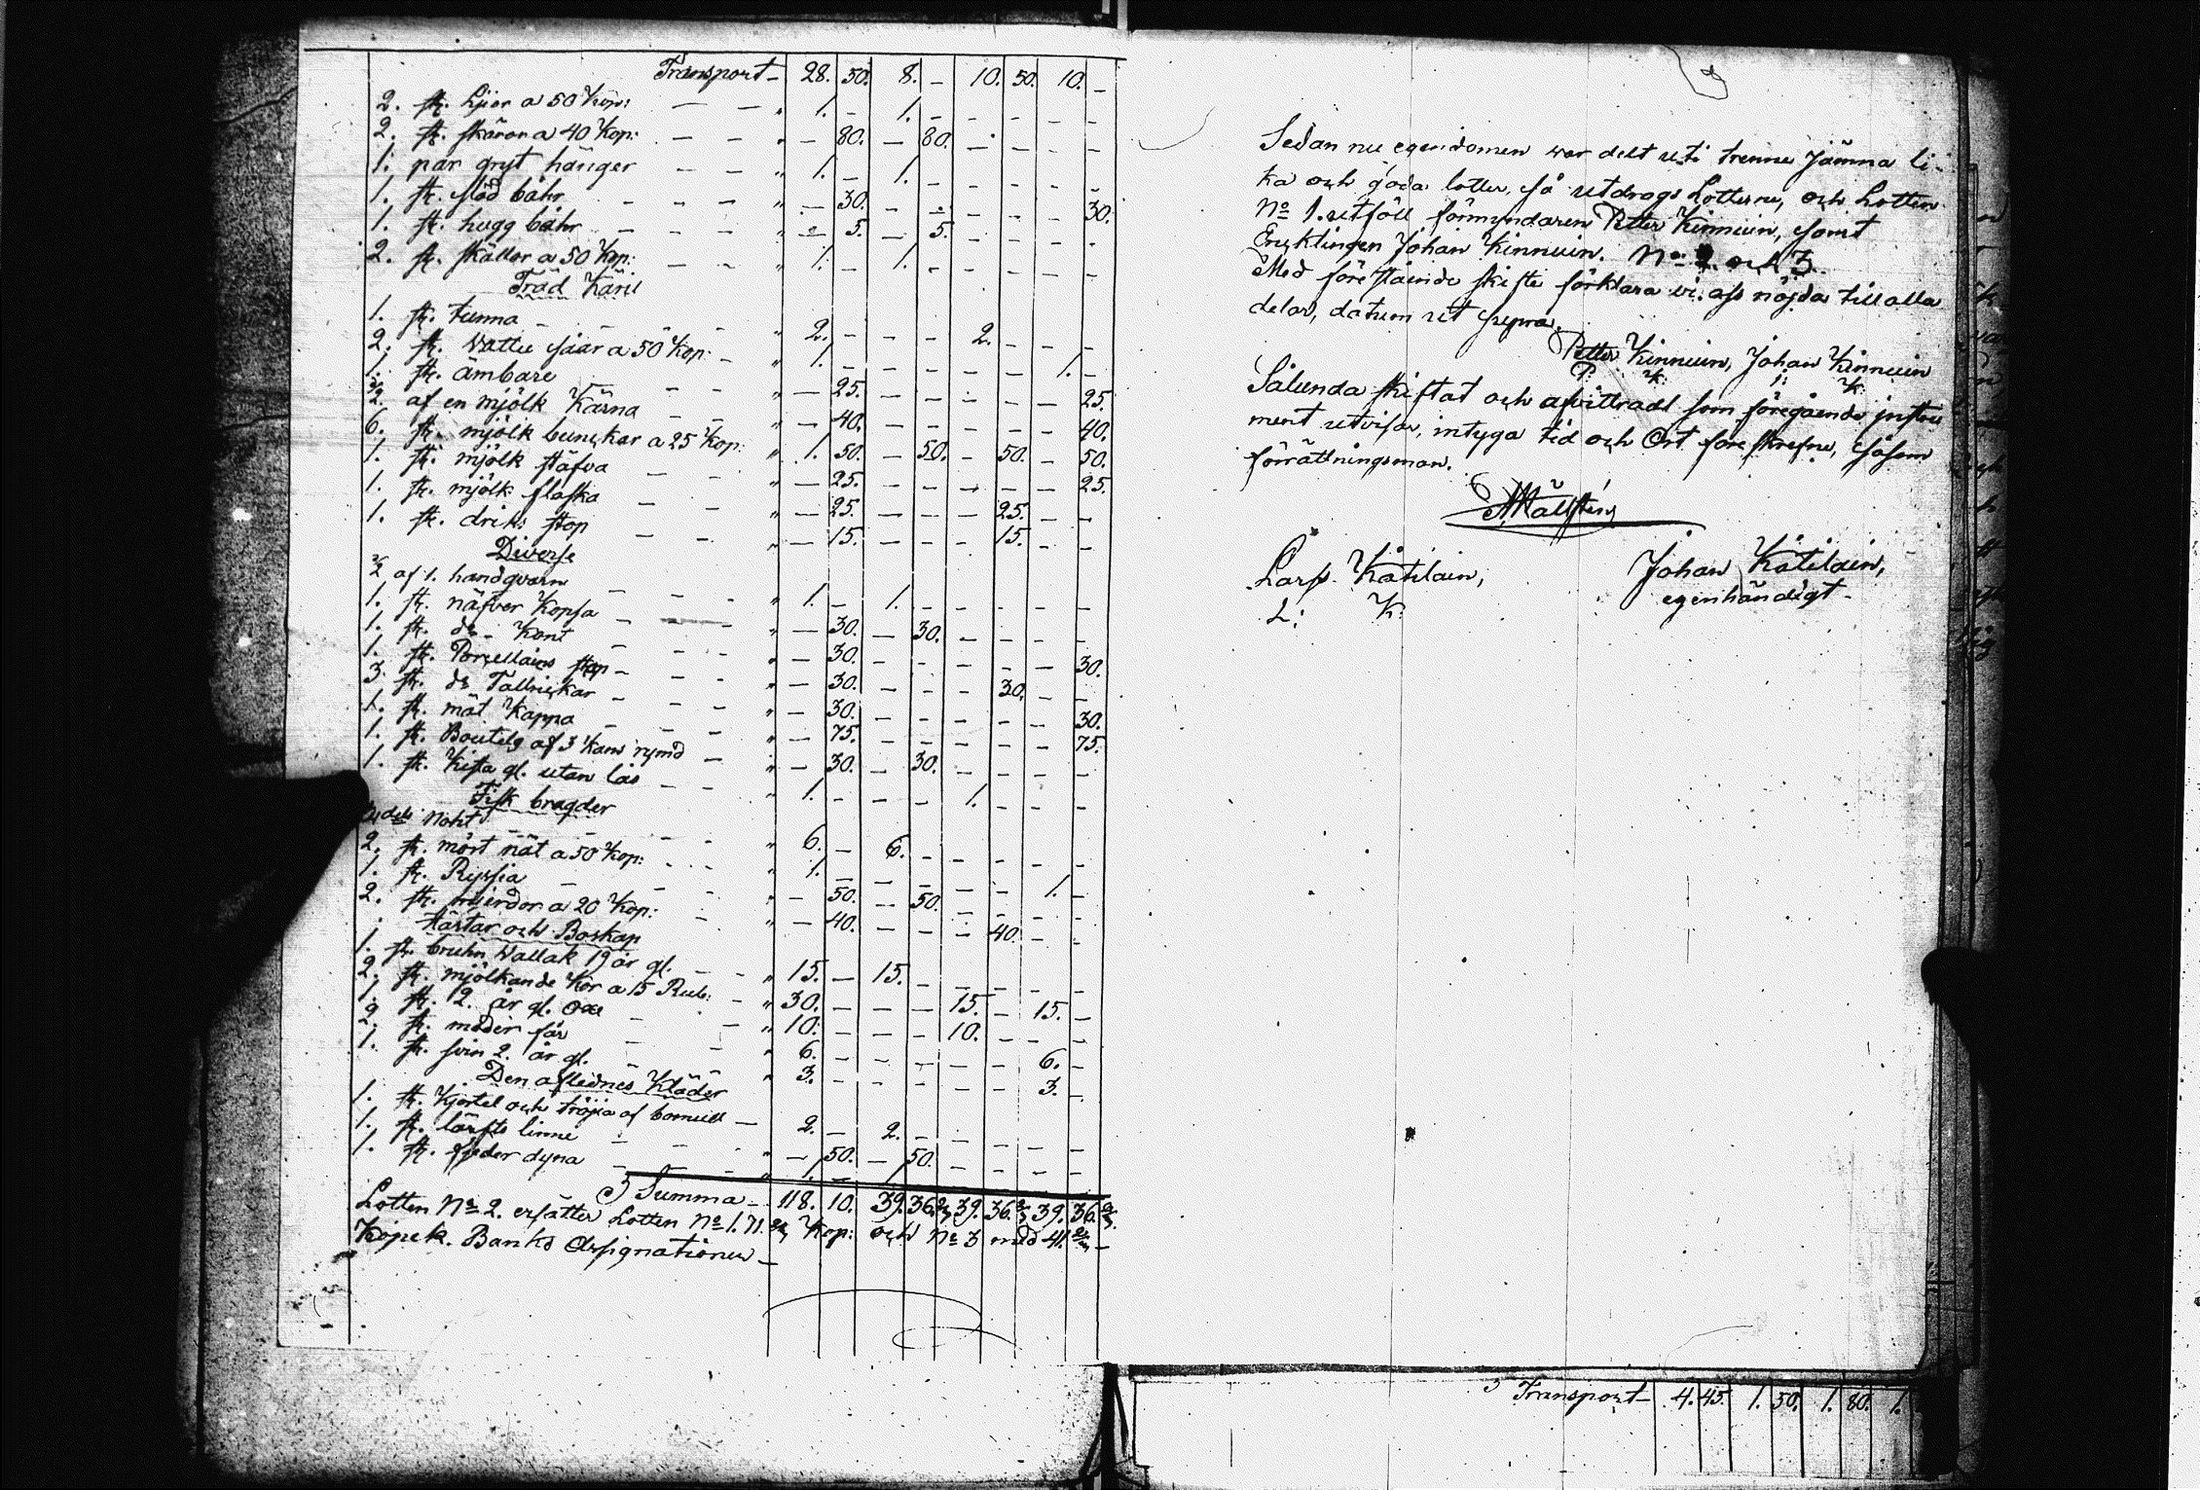 Transport 28. 50. 8. – 10. 50. 10. –
2. st. Lijor a 50 Kop: 1. – 1. – – – – –
2. st. skäror a 40 Kop: – 80. – 80. – – – –
1. par gryt hänger 1. – 1. – – – – –
1. st. stöd båhr – 30. – – – – – 30.
1. st. hugg båhr – 5. – 5. – – – –
2. st. skällor a 50 Kop: 1. – 1. – – – – –
Träd Käril
1. st. tunna 2. – – – 2. – – –
2. st. Vattu såar a 50 Kop: 1. – – – – – 1. –
1. st. ämbare – 25. – – – – – 25.
1/2 af en mjölk Kärna – 40. – – – – – 40.
6. st. mjölk bunckar a 25 Kop: 1. 50. – 50. – 50. – 50.
1. st. mjölk stäfva – 25. – – – – – 25.
1. st. mjölk flaska – 25. – – – 25. – –
1. st. driks stop – 15. – – – 15. – –
Diverse
1/2 af 1. handqvarn 1. – 1. – – – – –
1. st. näfver Kopsa – 30. – 30. – – – –
1. st. do Kont – 30. – – – – – 30.
1. st. Porcellains stop – 30. – – – 30. – –
3. st. do Tallrickar – 30. – – – – – 30.
1. st. mät Kappa – 75. – – – – – 75.
1. st. Boutelg af 3 Kans rymd – 30. – 30. – – – –
1. st. Kista gl. utan lås 1. – – – 1. – – –
Fisk bragder
dels Noht 6. – 6. – – – – –
2. st. mört nät a 50 Kop: 1. – – – – – 1. –
1. st. Ryssia – 50. – 50. – – – –
2. st. mjerdor a 20 Kop: – 40. – – – 40. – –
Hästar och Boskap
1. st. bruhn Wallak 19 år gl. 15. – 15. – – – – –
2. st. mjölkande Kor a 15 Rub: 30. – – – 15. – 15. –
1. st. 2. år gl. oxe 10. – – – 10. – – –
2. st. moder får 6. – – – – – 6. –
1. st. svin 2. år gl. 3. – – – – – 3. –
Den aflednes Kläder
1. st. Kjortel och tröjia af bomull 2. – 2. – – – – –
1. st. lärfts linne – 50. – 50. – – – –
1. st. fjeder dyna 1. – 1. –
Summa 118. 10. 39. 36 2/3 39. 36 2/3 39. 36 2/3
Lotten No 2. ersätter Lotten No 1. 71 2/3 Kop: och No 3 med 41 2/3
Kopek. Banko Assignationer
Sedan nu egendomen war delt uti trenne jämna li-
ka och goda lotter, så utdrogs Lotterne, och Lotten
No 1. utföll förmyndaren Petter Kinnuin, samt
Encklingen Johan Kinnuin. No 2 och 3.
Med förestående skifte förklara vi oss nöjda till alla
delar, datum ut supra.
Petter Kinnuin, Johan Kinnuin
P: K: J: K:
Sålunda skiftat och afvittradt som föregående instru
ment utvisar, intyga tid och Ort föreskrefne, såsom
förrättningsman.
Lars Kåtilain, Johan Kåtilain,
L: K: egenhändigt
Transport 4. 45. 1. 50. 1. 80. 1.